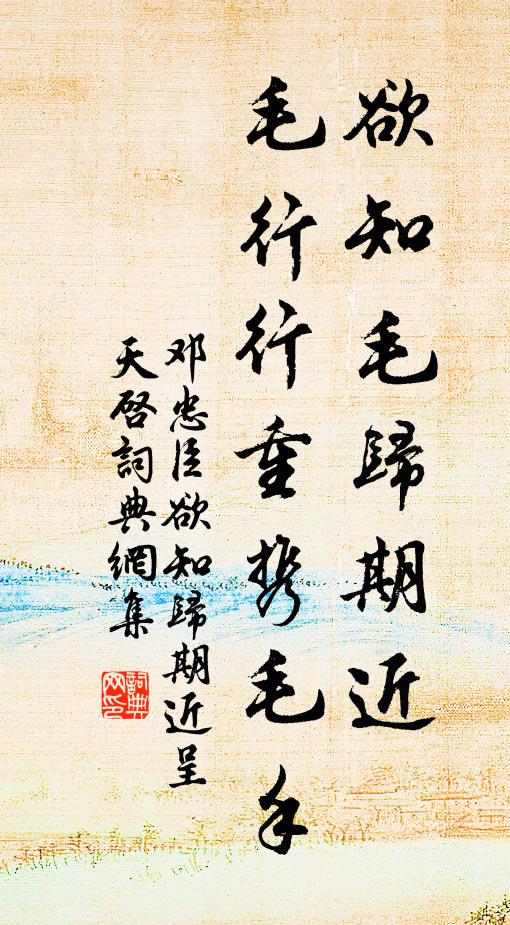 欲知毛歸期近
毛行行重携毛手
邓忠臣欲知歸期近呈
天啓詞典網集
詞典网印